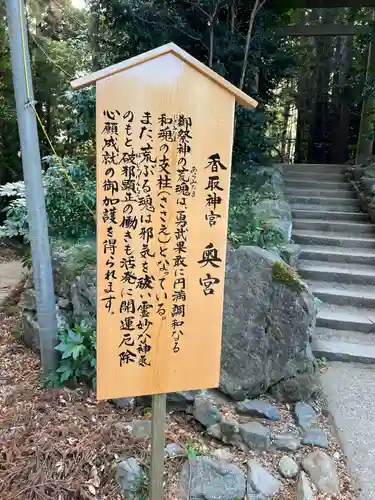 香取神宮 奥宮
御祭神の荒魂(あらみたま)は、勇武果敢に円満調和なる
和魂の支柱(ささえ)となっている。
また、荒ぶる魂は、邪気を祓い霊妙な神気
のもと破邪顕正の働きも活発に開運厄除
心願成就の御加護を得られる。